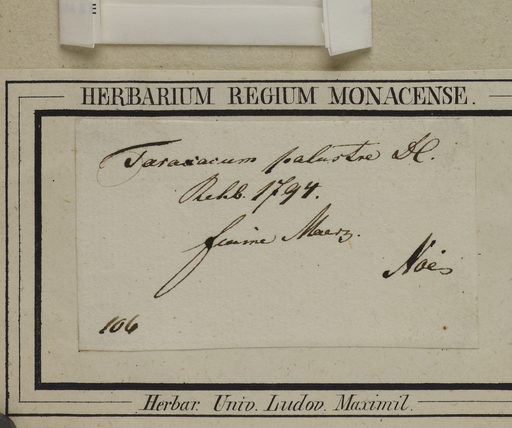 HERBARIUM REGIUM MONACENSE.
Taraxacum palustre DC.
Rchb. 1794.
fiume Maerz.
Noë
106
Herbar. Univ. Ludov. Maximil.